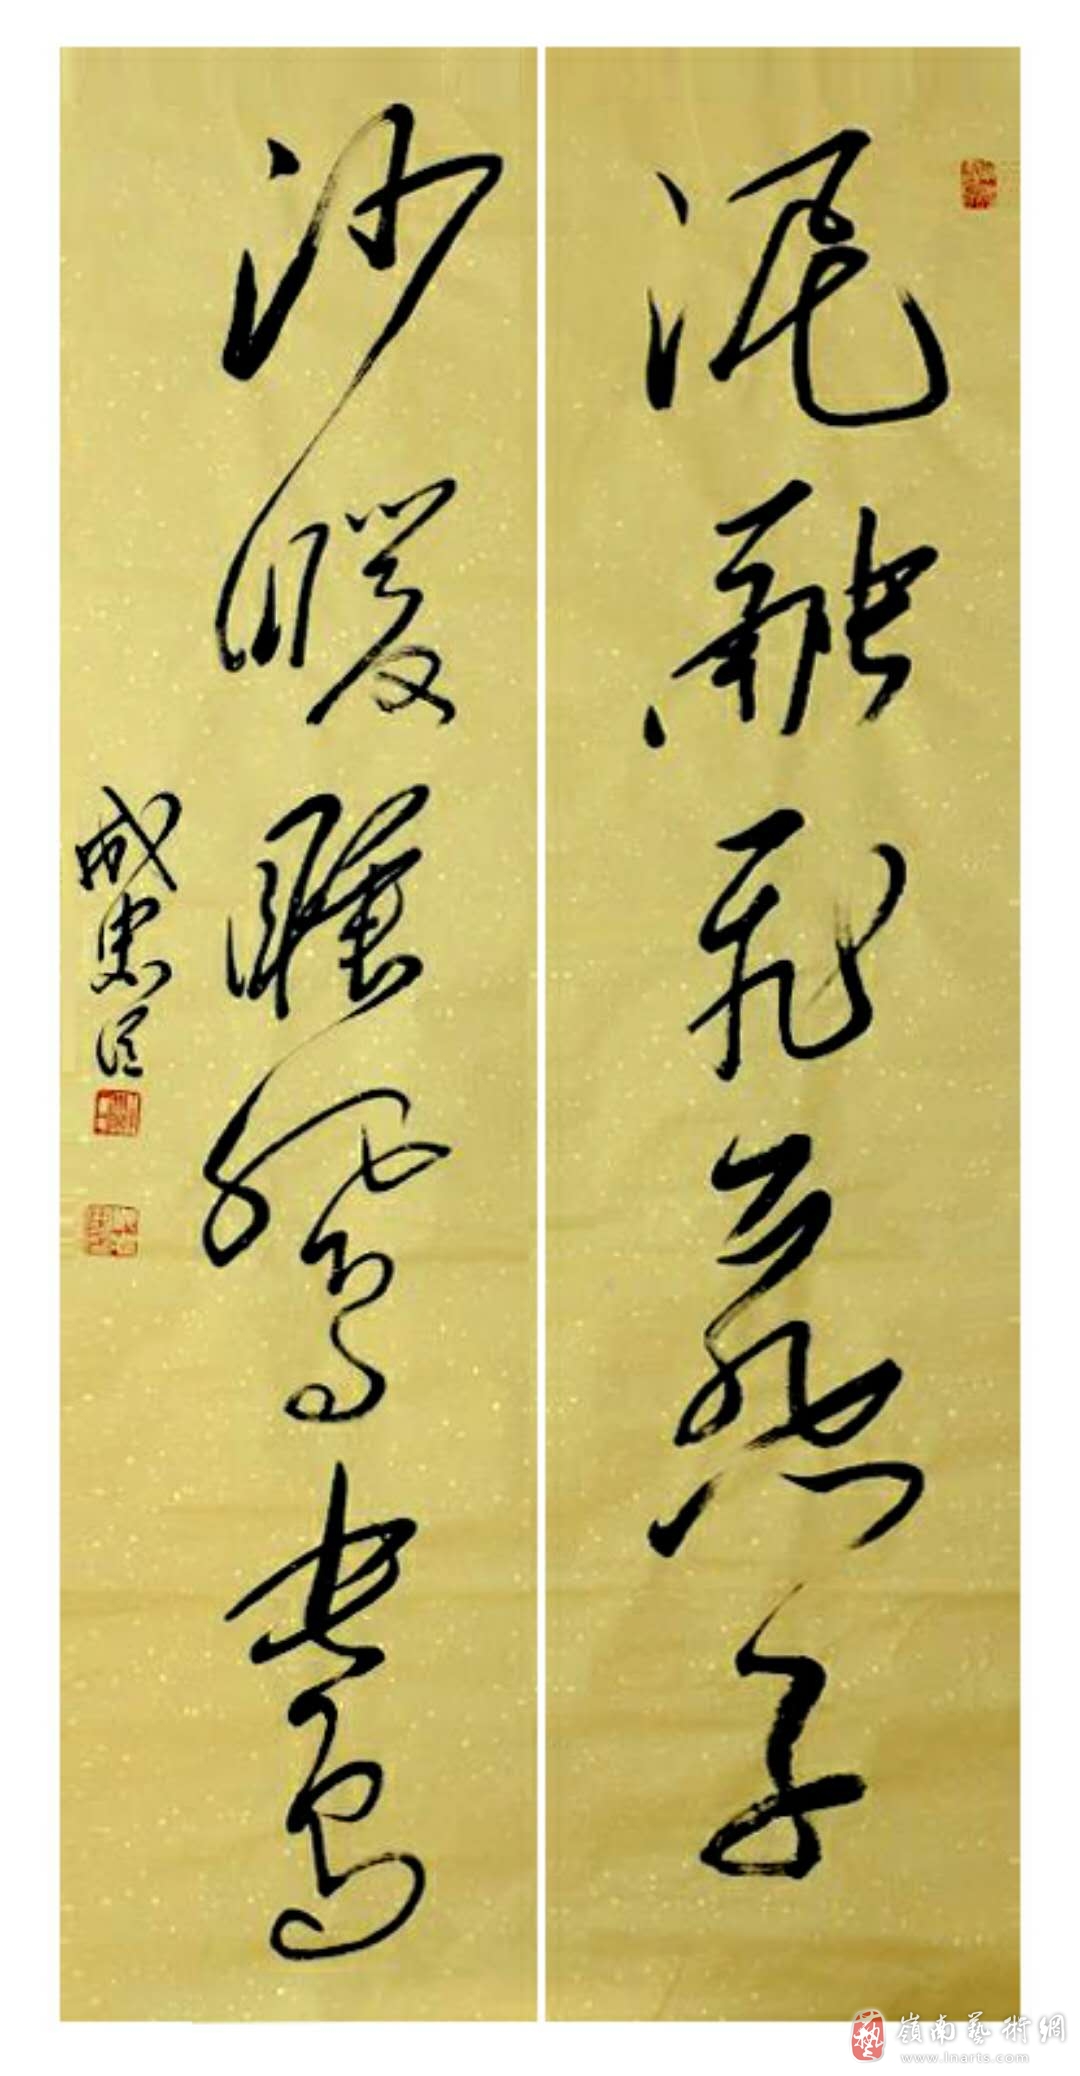 泥融飛燕子
沙暖睡鴛鴦
嶺南藝術網
www.lnarts.com